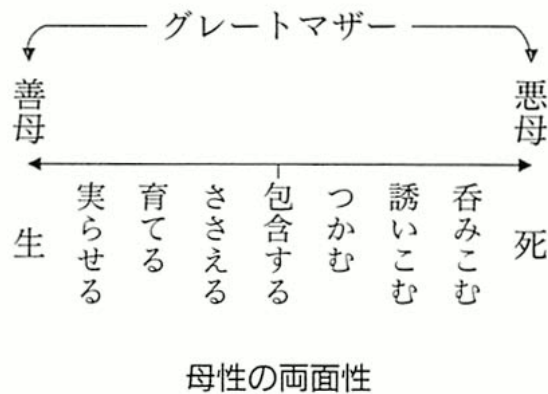 グレートマザー
善母
悪母
生
実らせる
育てる
ささえる
包含する
つかむ
誘いこむ
呑みこむ
死
母性の両面性